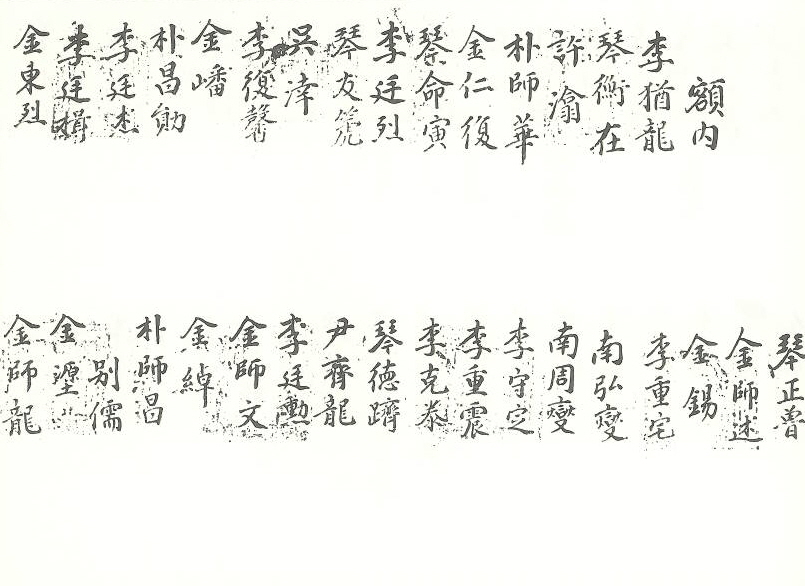 額内
李猶龍
琴衡在
許瀹
朴師華
金仁復
琴命寅
李廷烈
琴友篪
吳滜
李復馨
金嶓
朴昌勛
李廷杰
李廷楫
金東烈
琴正魯
金師述
金錫
李重宅
南弘夔
南周夔
李守定
李重震
李克泰
琴德躋
尹齊龍
李廷勳
金師文
金綽
朴師昌
別儒
金壂
金師龍